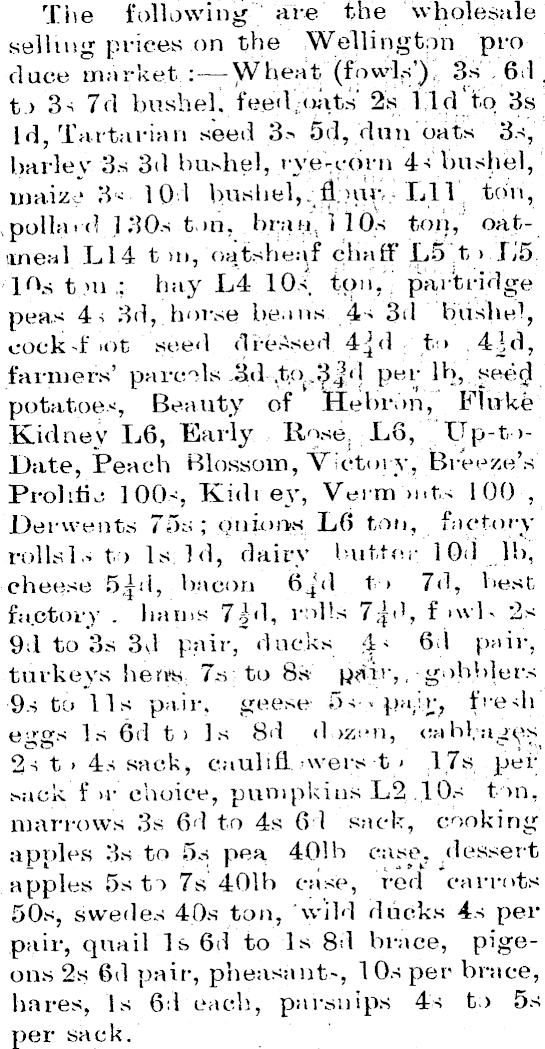 The following are the wholesale
selling prices on the Wellington pro
duce market :—Wheat (fowls') 3s 6d
to 3s 7d bushel, feed oats 2s 11d to 3s
1d, Tartarian seed 3s 5d, dun oats 3s,
barley 3s 3d bushel, rye-corn 4s bushel,
maize 3s 10d bushel, flour L11 ton,
pollard 130s ton, bran 110s ton, oat-
meal L14 ton, oatsheaf chaff L5 to L5
10s ton ; hay L4 10s ton, partridge
peas 4s 3d, horse beans 4s 3d bushel,
cocksfoot seed dressed 4¼d to 4½d,
farmers' parcels 3d to 3¾d per lb, seed
potatoes, Beauty of Hebron, Fluke
Kidney L6, Early Rose L6, Up-to-
Date, Peach Blossom, Victory, Breeze's
Prolific 100s, Kidney, Vermonts 100 ,
Derwents 75s ; onions L6 ton, factory
rolls 1s to 1s 1d, dairy butter 10d lb,
cheese 5¼d, bacon 6¼d to 7d, best
factory . hams 7½d, rolls 7¼d, fowls 2s
9d to 3s 3d pair, ducks 4s 6d pair,
turkeys hens 7s to 8s pair, gobblers
9s to 11s pair, geese 5s pair, fresh
eggs 1s 6d to 1s 8d dozen, cabbages
2s to 4s sack, cauliflowers to 17s per
sack for choice, pumpkins L2 10s ton,
marrows 3s 6d to 4s 6d sack, cooking
apples 3s to 5s pea 40lb case, dessert
apples 5s to 7s 40lb case, red carrots
50s, swedes 40s ton, wild ducks 4s per
pair, quail 1s 6d to 1s 8d brace, pige-
ons 2s 6d pair, pheasants, 10s per brace,
hares, 1s 6d each, parsnips 4s to 5s
per sack.